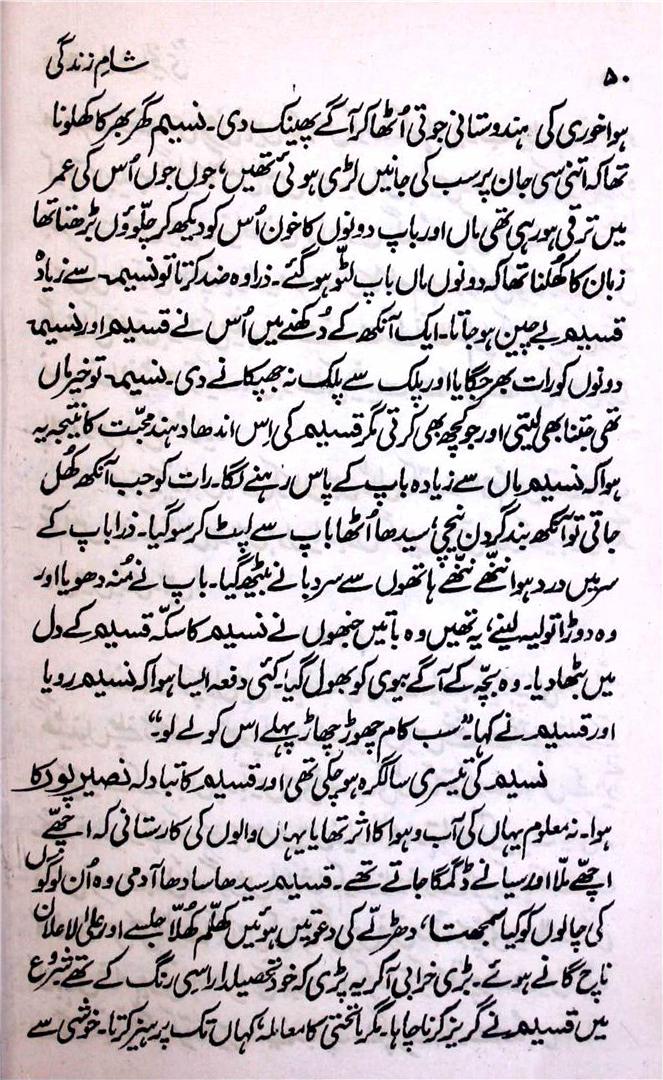 ۵۰
شامِ زندگی
ہوا خوری کی ہندوستانی جوتی اُٹھا کر آگے پھینک دی۔ نسیم گھر بھر کا کھلونا
تھا کہ اتنی سی جان پر سب کی جانیں لڑی ہوئی تھیں، جوں جوں اُس کی عمر
میں ترقی ہو رہی تھی ماں اور باپ دونوں کا خون اُس کو دیکھ کر چلّوؤں بڑھتا تھا
زبان کا کھُلنا تھا کہ دونوں ماں باپ لٹّو ہو گئے۔ ذرا وہ ضد کرتا تو نسیمہ سے زیادہ
قسیم بے چین ہو جاتا۔ ایک آنکھ کے دُکھنے میں اُس نے قسیم اور نسیمہ
دونوں کو رات بھر جگایا اور پلک سے پلک نہ جھپکانے دی۔ نسیمہ تو خیر ماں
تھی جتنا بھی لیتی اور جو کچھ بھی کرتی مگر قسیم کی اِس اندھا دہند محبّت کا نتیجہ یہ
ہوا کہ نسیم ماں سے زیادہ باپ کے پاس رہنے لگا۔ رات کو جب آنکھ کھُل
جاتی تو آنکھ بند گردن نیچی، سیدھا اُٹھا باپ سے لپٹ کر سو گیا۔ ذرا باپ کے
سر میں درد ہوا ننّھے ننّھے ہاتھوں سے سر دبانے بیٹھ گیا۔ باپ نے مُنہ دھویا اور
وہ دوڑا تولیہ لینے، یہ تھیں وہ باتیں جنھوں نے نسیم کا سکّہ قسیم کے دل
میں بٹھا دیا۔ وہ بچّہ کے آگے بیوی کو بھول گیا۔ کئی دفعہ ایسا ہوا کہ نسیم رویا
اور قسیم نے کہا۔ ”سب کام چھوڑ چھاڑ پہلے اس کو لے لو۔“
نسیم کی تیسری سالگرہ ہو چکی تھی اور قسیم کا تبادلہ نصیر پور کا
ہوا۔ نہ معلوم یہاں کی آب و ہوا کا اثر تھا یا یہاں والوں کی کارستانی کہ اچھّے
اچھّے ملّا اور سیانے ڈگمگا جاتے تھے۔ قسیم سیدھا سادھا آدمی وہ اُن لوگوں
کی چالوں کو کیا سمجھتا، دھڑلّے کی دعوتیں ہوئیں کھُلّم کھُلّا جلسے اور علیٰ الاعلان
ناچ گانے ہوئے۔ بڑی خرابی آ کر یہ پڑی کہ خود تحصیلدار اسی رنگ کے تھے شروع
میں قسیم نے گریز کرنا چاہا۔ مگر ماتحتی کا معاملہ، کہاں تک پرہیز کرتا۔ خوشی سے